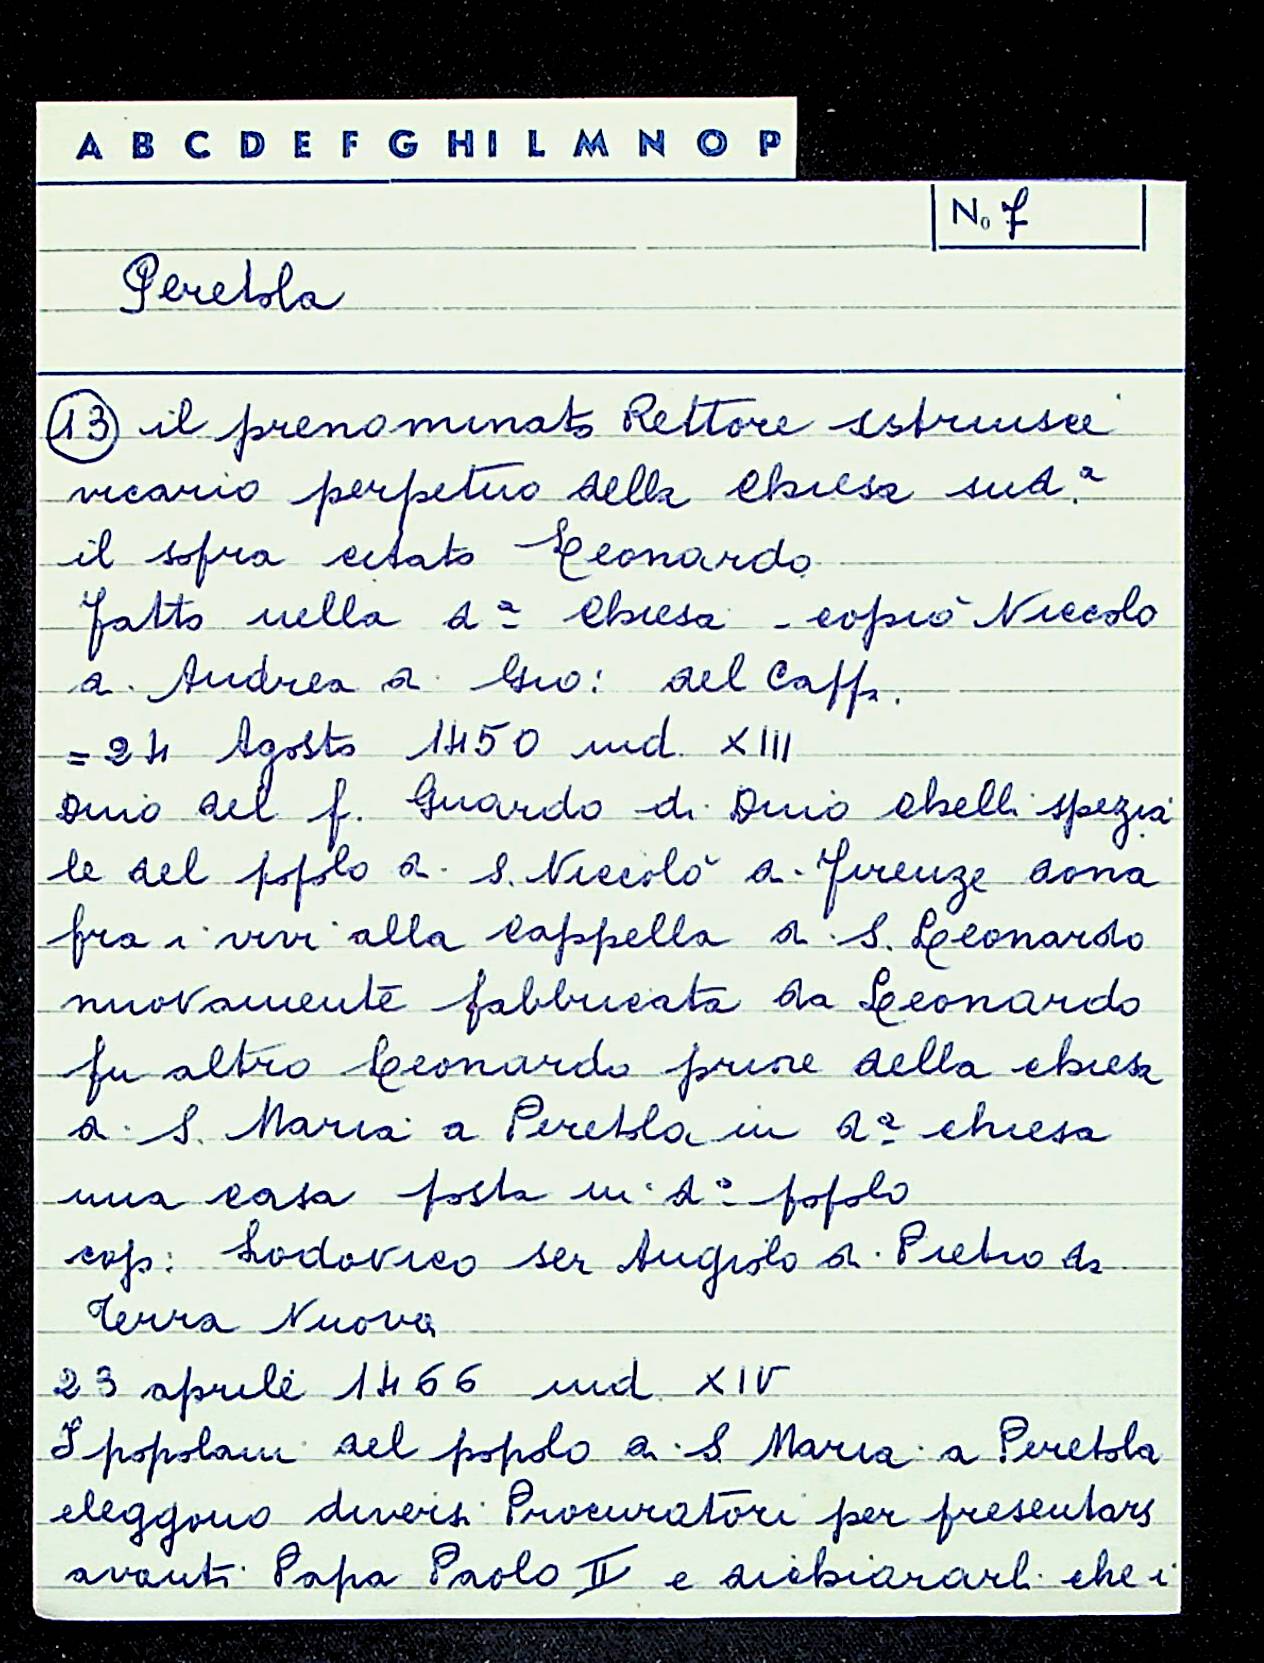 A B C D E F G H I L M N O P
No 7
Peretola
(13) il prenominato Rettore istruisce
vicario perpetuo della Chiesa sud.a
il sopra citato Leonardo
Fatto nella d.a Chiesa - copiò Niccolo
di Andrea di Gio: del Caffa.
= 24 Agosto 1450 ind. XIII
Dino del f. Guardo di Dino Chelli spezia
le del popolo di S. Niccolò di Firenze dona
fra i vivi alla Cappella di S. Leonardo
nuovamente fabbricata da Leonardo
fu altro Leonardo priore della chiesa
di S. Maria a Peretola in d.a chiesa
una casa posta in d.o popolo
cop: Lodovico ser Angiolo di Pietro da
Terra Nuova
23 aprile 1466 ind. XIV
I popolani del popolo di S. Maria a Peretola
eleggono diversi Procuratori per presentars
avanti Papa Paolo II e dichiararli che i